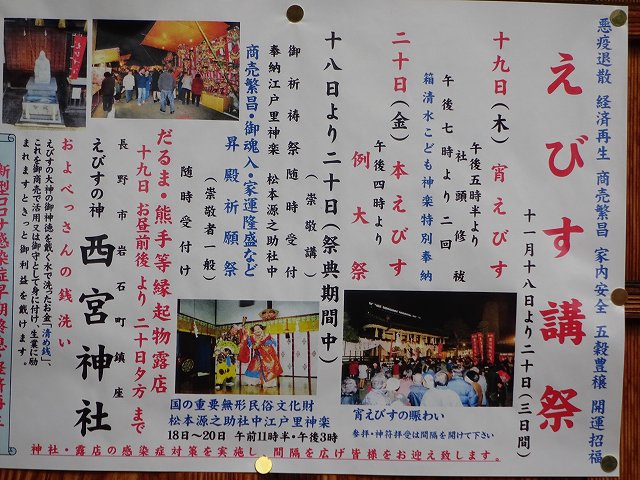 悪疫退散 経済再生 商売繁昌 家内安全 五穀豊穣 開運招福
えびす講祭
十一月十八日より二十日(三日間)
十九日(木)宵えびす
午後五時半より
社頭修祓
午後七時より二回
箱清水こども神楽特別奉納
二十日(金)本えびす
午後四時より
例大祭
十八日より二十日(祭典期間中)
(崇敬講)
御祈祷祭 随時受付
奉納江戸里神楽 松本源之助社中
商売繁昌・御魂入・家運隆盛など
昇殿祈願祭
(崇敬者一般)
随時受付け
だるま・熊手等縁起物露店
十九日 お昼前後より 二十日夕方まで
長野市岩石町鎮座
えびすの神 西宮神社
およべっさんの銭洗い
えびすの大神の御神徳を戴く水で洗ったお金「清め銭」、
これを御商売で活用又は御守として身に付け、生業に励
まれますときっと御利益を戴けます。
新型コロナ感染症早期終息
宵えびすの賑わい
参拝・神符拝受は間隔を開けて下さい
国の重要無形民俗文化財
松本源之助社中江戸里神楽
18日〜20日 午前11時半・午後3時
神社・露店の感染症対策を実施し、間隔を広げ皆様をお迎え致します。